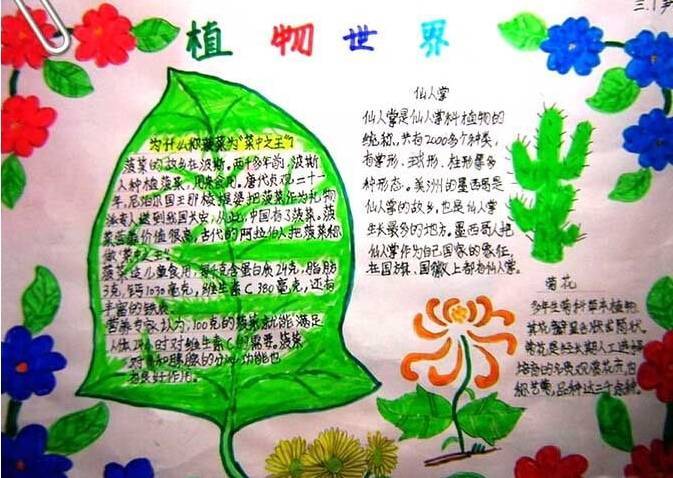 三.1
植物世界
为什么称菠菜为"菜中之王"?
菠菜的故乡在波斯。两千多年前，波斯
人种植菠菜，用来食用。唐代贞观二十一
年，尼泊尔国王那棱提婆把菠菜作为礼物
派专人送到我国长安，从此，中国有了菠菜。菠
菜营养价值很高，古代的阿拉伯人把菠菜称
做"菜中之王"。
菠菜适儿童食用，每千克含蛋白质24克，脂肪
3克，钙1030毫克，维生素C 380毫克，还有
丰富的铁质。
营养专家认为，100克的菠菜就能满足
人体24小时对维生素C的需要。菠菜
对胃和胰腺的分泌功能也
有良好作用。
仙人掌
仙人掌是仙人掌科植物的
统称，共有2000多个种类，
有掌形、球形、柱形等多
种形态。美洲的墨西哥是
仙人掌的故乡，也是仙人掌
生长最多的地方。墨西哥人把
仙人掌作为自己国家的象征，
在国旗、国徽上都有仙人掌。
菊花
多年生菊科草本植物，
其花瓣呈舌状或筒状。
菊花是经长期人工选择
培育的名贵观赏花卉，也
称艺菊，品种达三千余种。